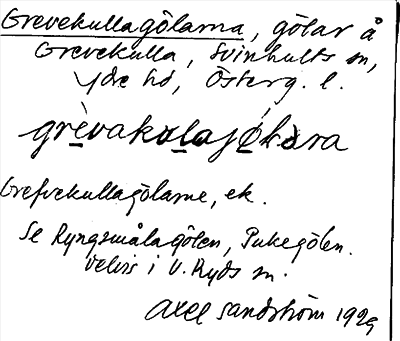 Grevekullagölarna, gölar å
Grevekulla, Svinhults sn,
Ydre hd, Österg. l.
grèvakulajø̀lara
Grefvekullagölarne, ek.
Se Ryngsmålagölen, Pukegölen.
delvis i V. Ryds sn.
Axel Sandström 1929